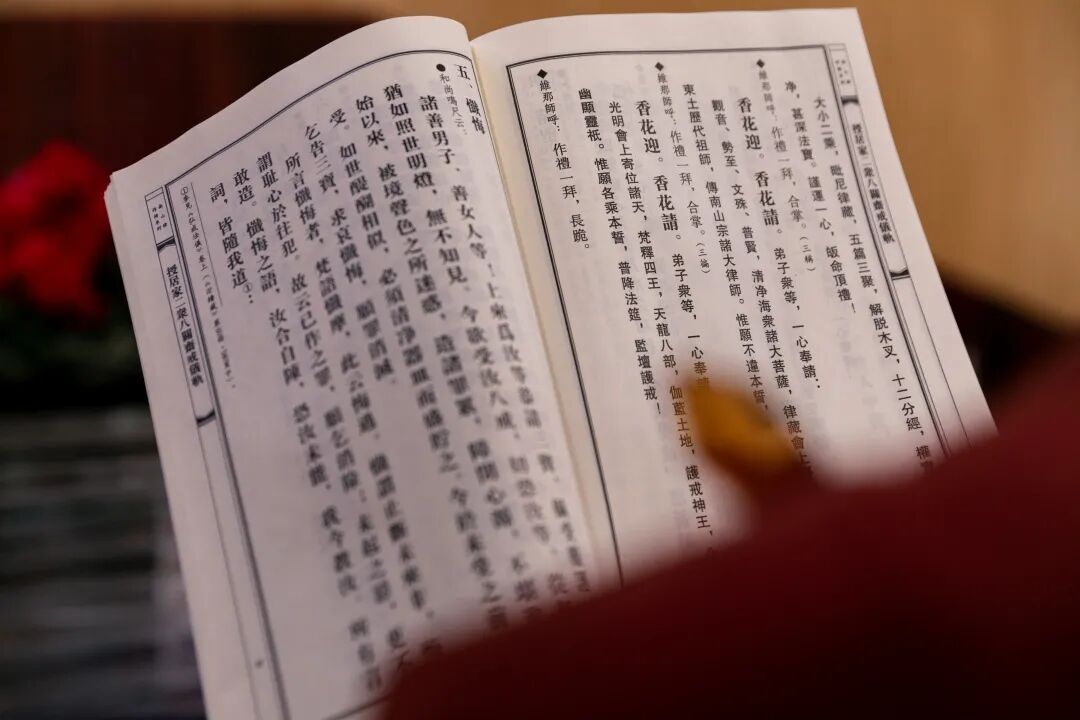 授居家二眾八關齋戒儀軌
大小二乘，毗尼律藏，五篇三聚，解脫木叉，十二分經，權
淨，甚深法寶。謹運一心，皈命頂禮！
◆維那師呼：作禮一拜，合掌。（三稱）
香花迎。香花請。弟子眾等，一心奉請：
觀音、勢至、文殊、普賢，清淨海眾諸大菩薩，律藏會上
東土歷代祖師，傳南山宗諸大律師。惟願不違本誓，
◆維那師呼：作禮一拜，合掌。
香花迎。香花請。弟子眾等，一心奉請
光明會上寄位諸天，梵釋四王，天龍八部，伽藍土地，護戒神王，
幽顯靈祇。惟願各乘本誓，普降法筵，監壇護戒！
◆維那師呼：作禮一拜，長跪。
五、懺悔
●和尚鳴尺云：
諸善男子、善女人等！上來爲汝等恭請三寶，
猶如照世明燈，無不知見。今欲受汝八戒，切恐汝等，從
始以來，被境聲色之所迷惑，造諸罪累，障閉心源，不堪
受。如世醍醐相似，必須清淨器皿而盛貯之。今於未受之
乞告三寶，求哀懺悔，願罪消滅。
所言懺悔者，梵語懺摩，此云悔過。懺謂止斷未來非，
謂恥心於往犯。故云已作之罪，願乞消除；未起之罪，更不
敢造。懺悔之語，汝合自陳，恐汝未能，我今教汝，
詞，皆隨我道①：
授居家二眾八關齋戒儀軌